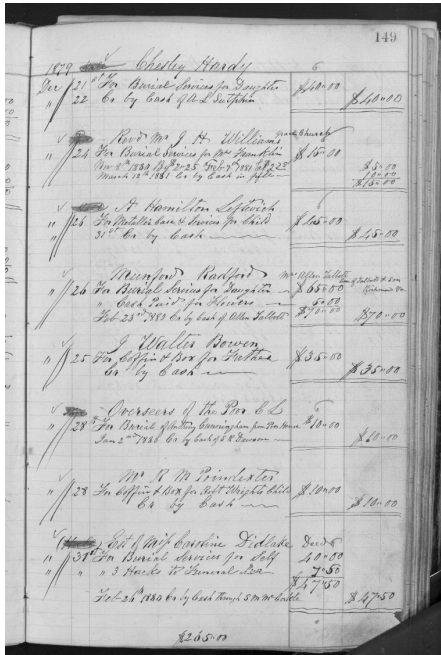 149
1879 Chesley Hardy
Dec 21st For Burial Services for Daughter $40.00
" 22 Cr by Cash of A L Sutphin $40.00
Revd Mr J. H. Williams Grace Church
" 24 For Burial Services for Mr $15.00
$5.00
March 12th 1881 Cr by Cash in full 10.00
$15.00
A Hamilton
" 25 For Metallic Case & Services for Child $45.00
31st Cr by Cash $45.00
Munford Radford Mr Allen Talbott
" 26 For Burial Services for Daughter $65.00
" Cash Paid for Flowers 5.00
Feb 23rd 1880 Cr by Cash of Allen Talbott $70.00 $70.00
J Walter Bowen
" 25 For Coffin & Box for Father $35.00
Cr by Cash $35.00
Overseers of the Poor C L
" 28th For Burial of Cunningham from Poor House $10.00
Jany 2nd 1880 Cr by Cash of $10.00
Mr R M Poindexter
" 28 For Coffin & Box for Wright's Child $10.00
Cr by Cash $10.00
Est of Miss Caroline Didlake Decd
" 31st For Burial Services for Self 40.00
" " 3 Hacks to Funeral 7.50
$47.50
Feb 24th 1880 Cr by Cash through S M McCorkle $47.50
$265.00